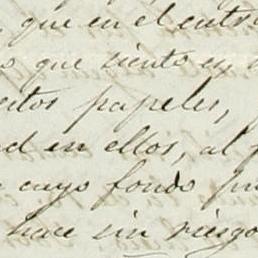 que en el entr
que siento en
papeles,
d en ellos, al
cuyo fondo
hace sin riesgo